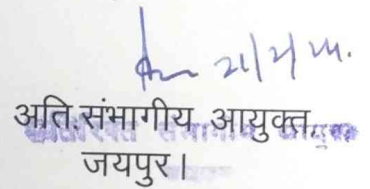 21/2/24.
अति.संभागीय आयुक्त,
जयपुर।